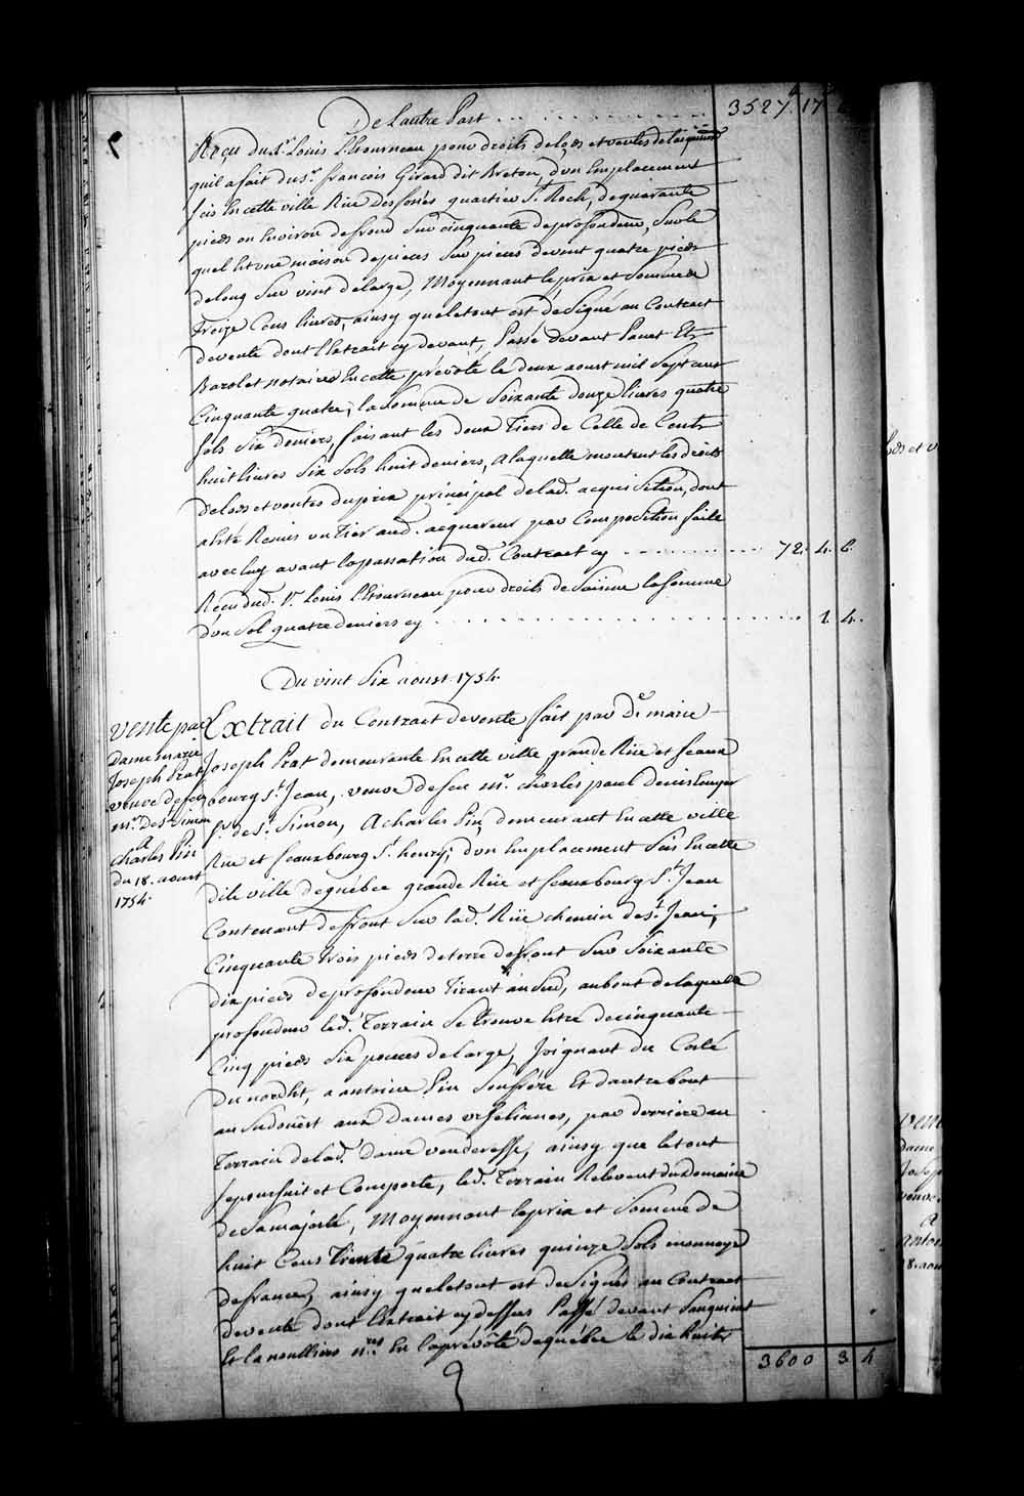 De Lautre Part ... 3527. 17
Reçu du Sr. Louis Lhourneau pour droits de lods et ventes de lacquisition
quil a fait du Sr. francois Girard dit Breton, d'un Emplacement
sis En cette ville Rue des fossés quartier St. Roch, de quarante
pieds ou Environ de frond Sur cinquante de profondeur, Sur le
quel Est une maison de pieces sur pieces de vint quatre pieds
de long Sur vint de large, Moyennant le prix et Somme de
Treize Cens livres, ainsy que le tout est designé au Contract
de vente dont Extrait cy devant, Passé devant Panet Et
Barolet notaires En cette prévôté le deux aoust mil Sept cent
Cinquante quatre, la Somme de Soixante douze livres quatre
Sols Six deniers, faisant les deux Tiers de Celle de Cent
huit livres Six Sols huit deniers, a laquelle montent les droits
de lods et ventes du prix principal de lad. acquisition, dont
a été Remis un Tier aud. acquereur par Composition faite
avec luy avant la passation dud. Contract cy ... 72. 4. 6.
Reçu dud. Sr. Louis Lhourneau pour droits de Saisine la Somme
d'un Sol quatre deniers cy ... 1. 4.
Du vint Six aoust 1754.
vente par
Dame marie
Joseph Prat
veuve de feu
mr. De St. Simon
a
Charles Pin
du 18. aoust
1754.
Extrait du Contract de vente fait par De. marie
Joseph Prat demeurante En cette ville grande Rüe et feaux
bourg St. Jean, veuve de feu mr. charles paul denis
Sr. de St. Simon, A charles Pin, demeurant En cette ville
Rüe et feauxbourg St. henry; d'un Emplacement Sis En cette
dite ville de quebec grande Rüe et feauxbourg St. Jean
Contenant de front Sur lad. Rüe chemin de St. Jean,
Cinquante trois pieds de terre de front Sur Soixante
dix pieds de profondeur Tirant au Sud, au bout de laquelle
profondeur led. Terrain Se trouve Etre de cinquante
Cinq pieds Six pouces de large, Joignant du Coté
du nord Est, a antoine Pin Son frère Et d'autre bout
au Sudouest aux Dames ursulinnes, par derriere au
Terrain de lad. Dame venderesse, ainsy que le tout
Se poursuit et Comporte, led. Terrain Relevant du Domaine
de Sa majesté, Moyennant le prix et Somme de
huit Cens Trente quatre livres quinze Sols monnoye
de france, ainsy que le tout est designé au Contract
de vente dont Extrait cy dessus Passé devant Sanguinet
Et Lanoullier nres. En la prévôté de quebec le dix huit
3600 3 4
Lods et v
vente
dame
Josep
veuve
a
antoi
18. aou